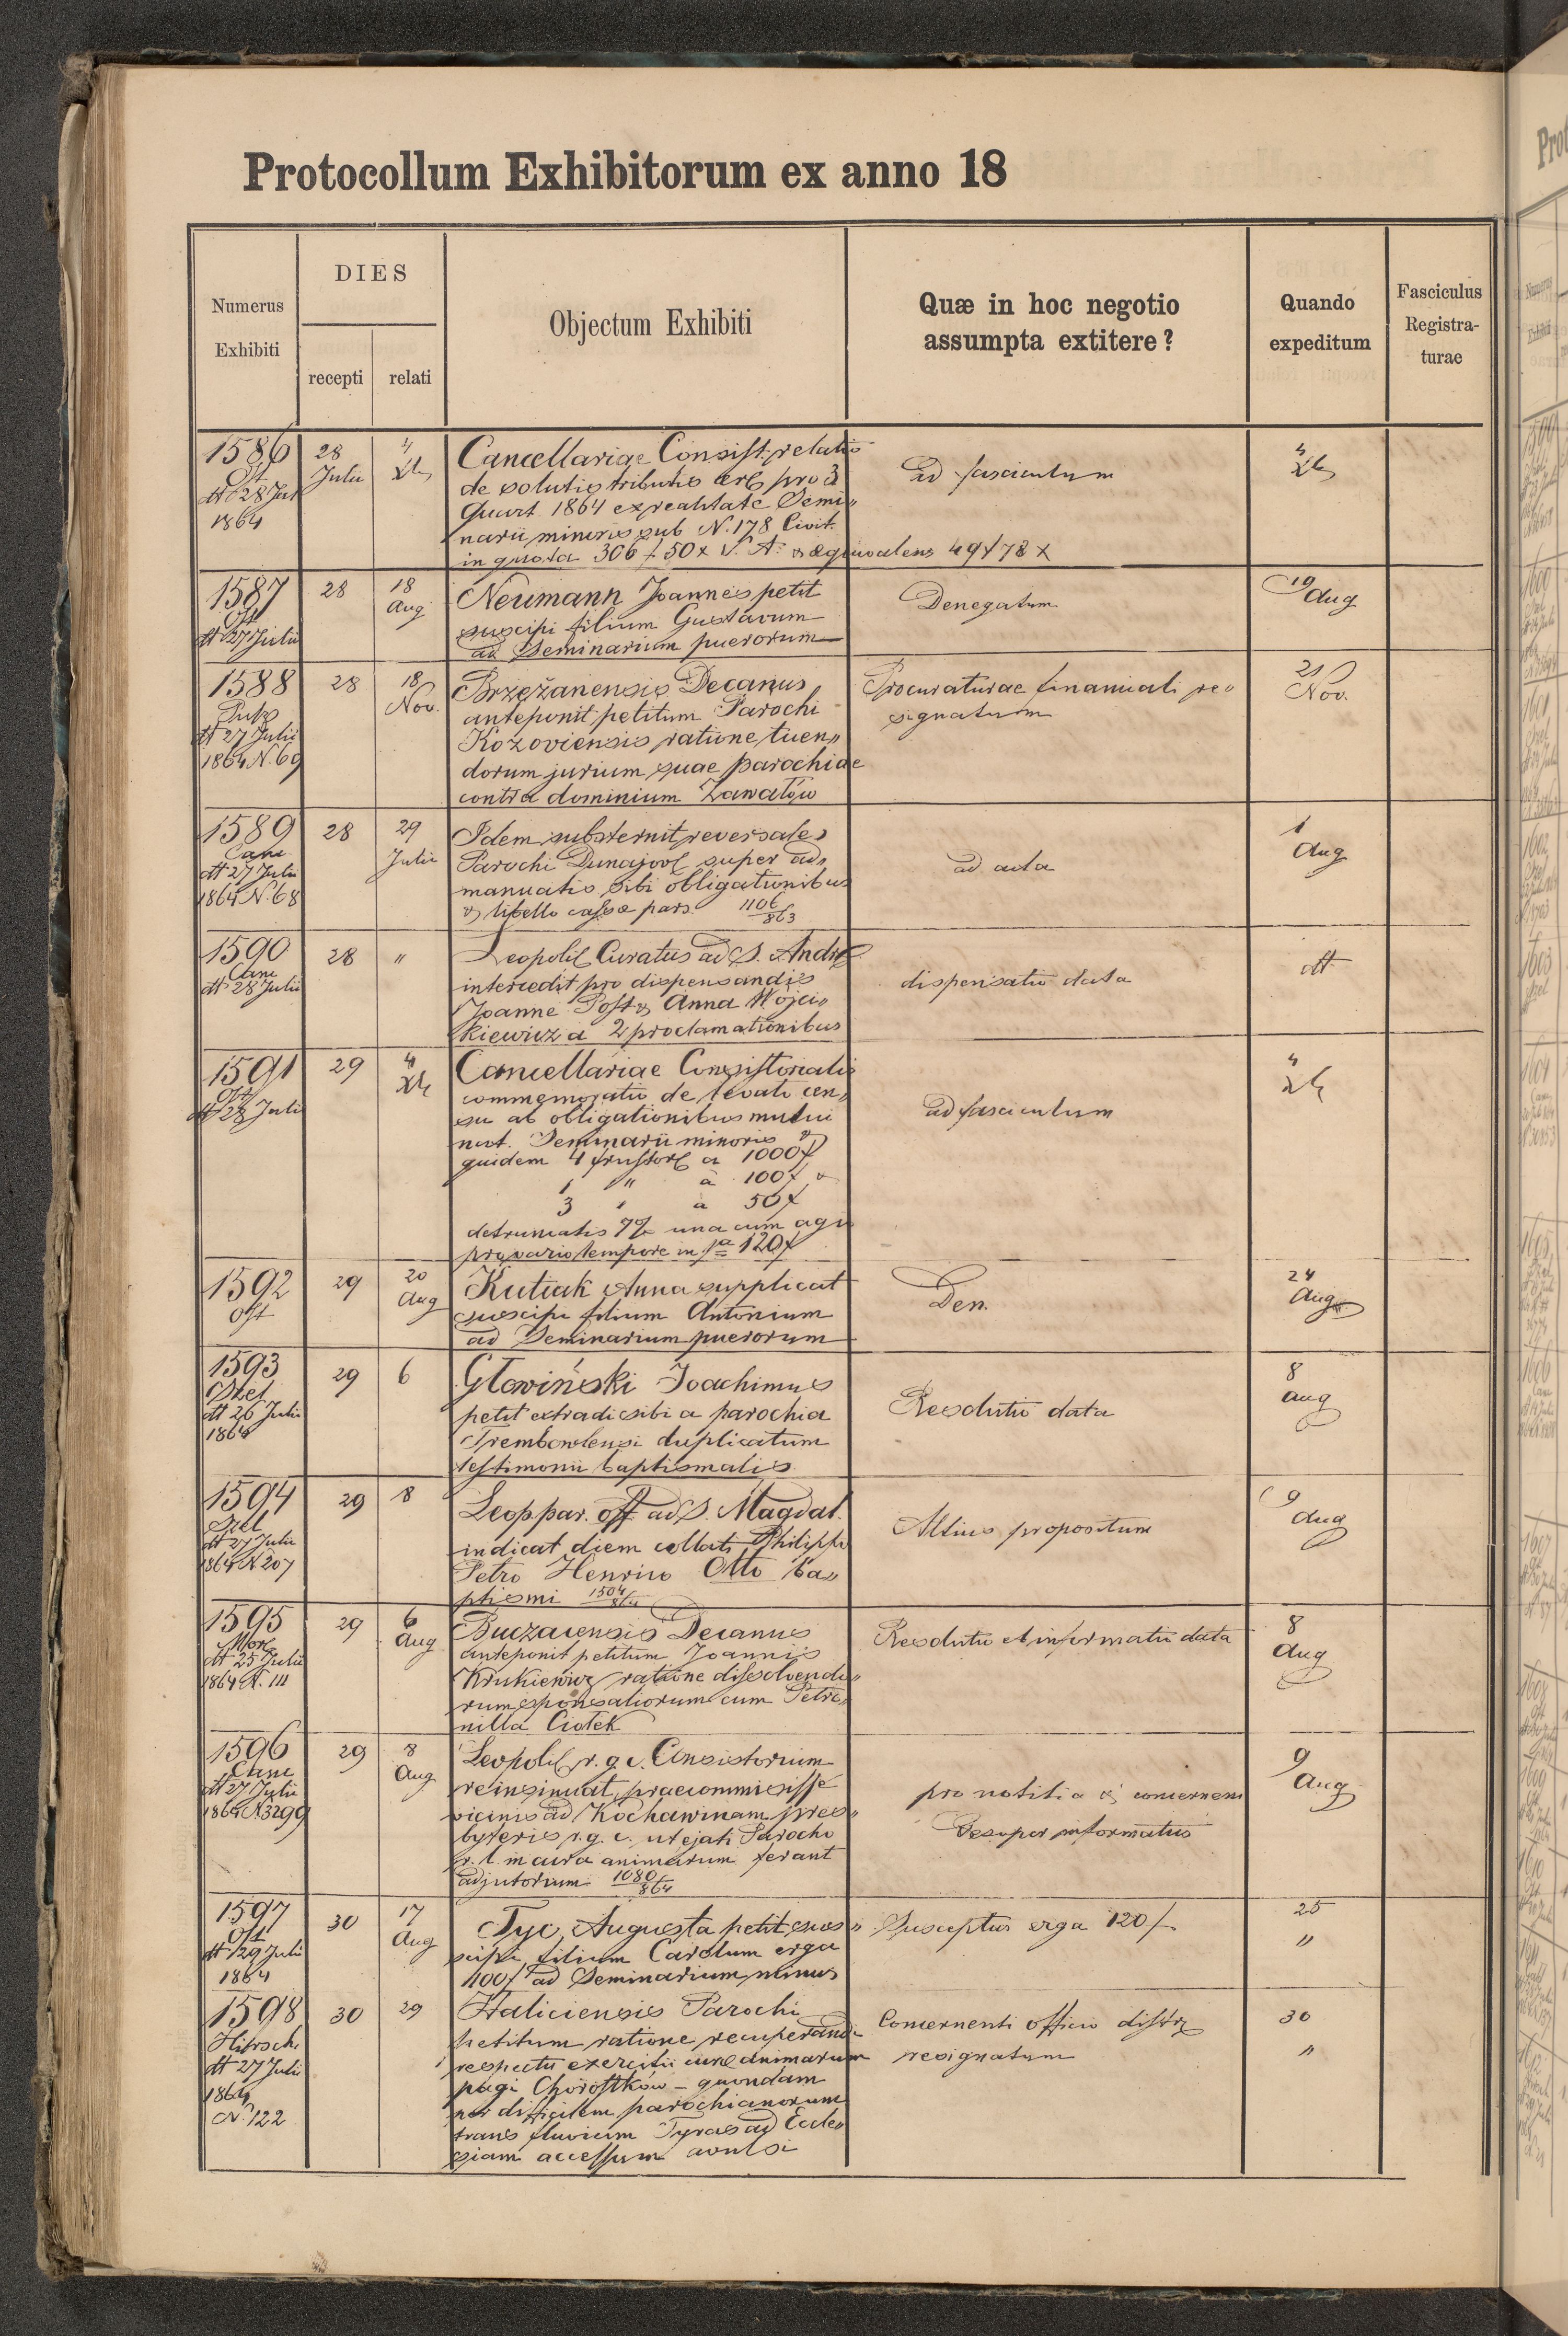 Protocollum Exhibitorum ex anno 18
Numerus
Exhibiti
DIES
recepti
relati
Objectum Exhibiti
Quæ in hoc negotio
assumpta extitere?
Quando
expeditum
Fasciculus
Registra-
turae
1586
Ost
dt 28 Jul
1864
28
Julii
4
Xb
Cancellariae Consist. relatio
de solutio tributo pro 3
Quart. 1864 ex realitate Semi„
narii minoris sub N. 178 Civit.
in quota 306 f 50 x V. A. & aequivalens 49 f 78 x
ad fasciculum
4
Xb
1587
Ost
dt 27 Julii
28
18
Aug
Neumann Joannes petit
suscipi filium Gustavum
ad Seminarium puerorum
Denegatum
19
Aug
1588
dt 27 Julii
1864 N. 69
28
18
Nov.
Brzeżanensis Decanus
anteponit petitum Parochi
Kozoviensis ratione tuen„
dorum jurium suae parochiae
contra dominium Zawałów
Procuraturae financiali re„
signatum
21
Nov.
1589
Canc
dt 27 Julii
1864 N. 68
28
29
Julii
Idem substernit reversales
Parochi Dunajov super ad„
manuatis sibi obligationibus
& libello cassae pars. 1106/863
ad acta
1
Aug
1590
Canc
dt 28 Julii
28
"
Leopol Curatus ad S. Andr
intercedit pro dispensandis
Joanne Post & Anna Wojci„
kiewicz a 2 proclamationibus
dispensatio data
dt
1591
Ost
dt 28 Julii
29
4
Xb
Cancellariae Consistorialis
commemoratio de levato cen„
su ab obligationibus mutui
nat. Seminarii minoris &
quidem 4 frustor a 1000 f
1 " à 100 f &
3 " à 50 f
detruncatis 7% una cum agio
pro vario tempore in sa 120 f
ad fasciculum
4
Xb
1592
Ost
29
20
Aug
Kutiak Anna supplicat
suscipi filium Antonium
ad Seminarium puerorum
Den.
24
Aug
1593
dt 26 Julii
1864
29
6
Głowiński Joachimus
petit extradi sibi a parochia
Trembowlensi duplicatum
testimonii baptismalis
Resolutio data
8
aug
1594
dt 27 Julii
1864 N 207
29
8
Leop. par. off. ad S. Magdal.
indicat diem collati Philippo
Petro Henrico Otto ba„
ptismi 1504/864
Altius propositum
9
aug
1595
dt 25 Julii
1864 N. 111
29
6
Aug
Buczacensis Decanus
anteponit petitum Joannis
Krukiewicz ratione dissolvendo„
rum sponsaliorum cum Petro„
nilla Ciołek
Resolutio et informatio data
8
Aug
1596
Canc
dt 27 Julii
1864 N 3299
29
8
Aug
Leopol r. g. c. Consistorium
reinsinuat, praecommisisse
vicinis ad Kochawinam pres„
byteris r. g. c. ut ejati Parocho
r. l. in cura animarum ferant
adjutorium 1080/864
pro notitia & concernens
desuper informatus
9
Aug
1597
Ost
dt 29 Julii
1864
30
17
Aug
Tyc Augusta petit sus„
cipi filium Carolum erga
100 f ad Seminarium minus
Susceptus erga 120 f
25
"
1598
dt 27 Julii
1864
N. 122
30
29
Haliciensis Parochi
petitum ratione recuperandi
respectu exercitii curae animarum
pagi Chorostków – quondam
per difficilem parochianorum
trans fluvium Tyras ad Eccle„
siam accessum avulsi
Concernenti officio distr
resignatum
30
"